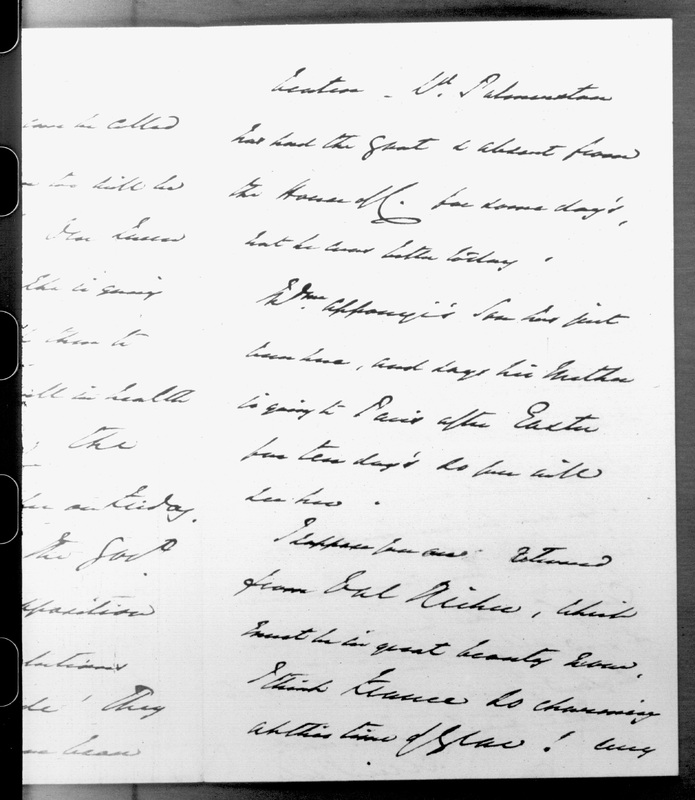 come he called
too kill he
Our Queen
She is going
them to
ill in health
the
on Friday.
the Govt
pposition
lutions
They
been
Easter - Ld. Palmerston
has had the gout & absent from
the House of C. for some day's,
but he was better today!
Mme. Apponyi's Son has just
been here, and says his Mother
is going to Paris after Easter
for ten day's so you will
see her.
I suppose you are returned
from Val Richer, which
must be in great beauty now,
I think France so charming
at this time of year! any